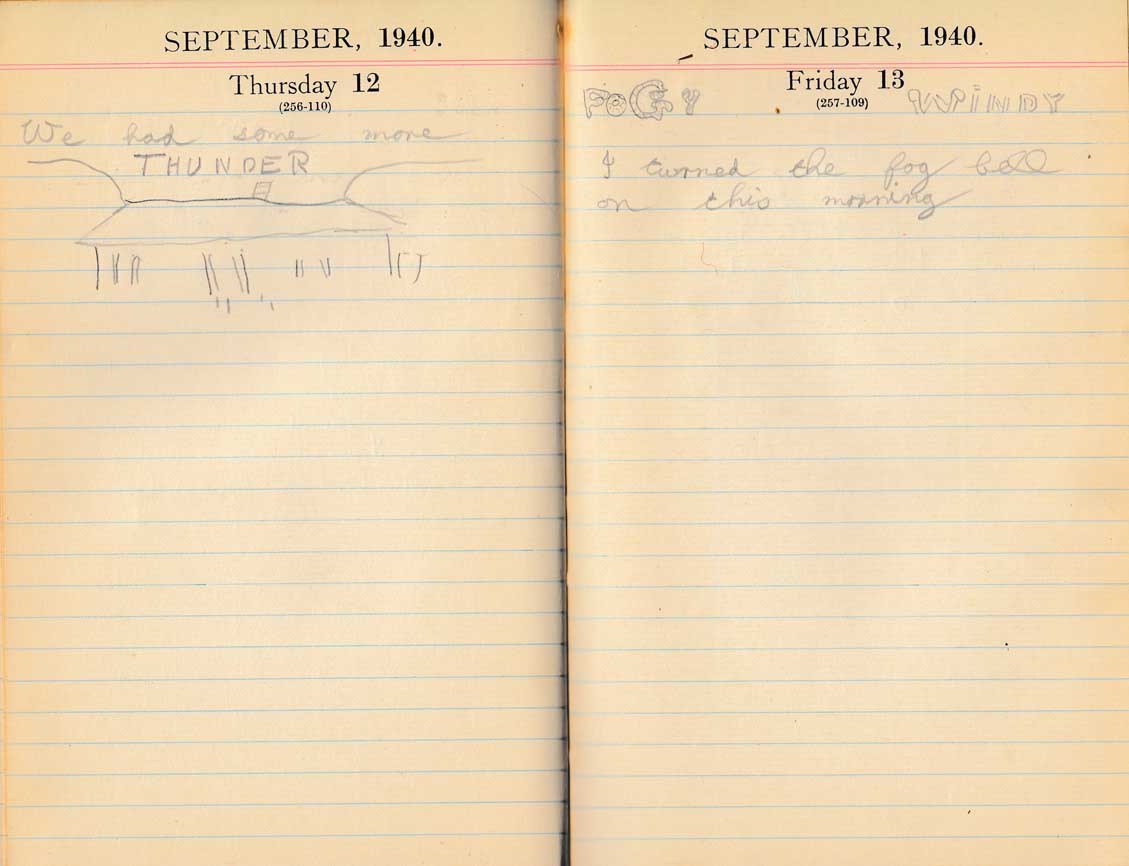 SEPTEMBER, 1940.
Thursday 12
(256-110)
We had some more
THUNDER
SEPTEMBER, 1940.
Friday 13
(257-109)
FOGY WINDY
I turned the fog bell
on this morning